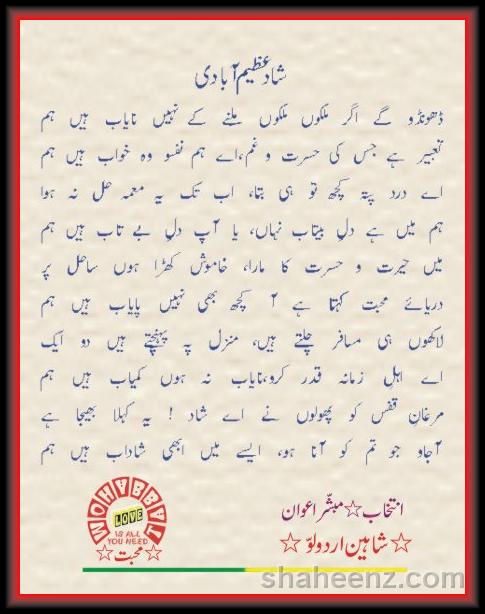 شاد عظیم آبادی
ڈھونڈو گے اگر ملکوں ملکوں ملنے کے نہیں نایاب ہیں ہم
تعبیر ہے جس کی حسرت و غم،اے ہم نفسو وہ خواب ہیں ہم
اے درد پتہ کچھ تو ہی بتا، اب تک یہ معمہ حل نہ ہوا
ہم میں ہے دلِ بیتاب نہاں، یا آپ دلِ بے تاب ہیں ہم
میں حیرت و حسرت کا مارا، خاموش کھڑا ہوں ساحل پر
دریائے محبت کہتا ہے آ کچھ بھی نہیں پایاب ہیں ہم
لاکھوں ہی مسافر چلتے ہیں، منزل پہ پہنچتے ہیں دو ایک
اے اہلِ زمانہ قدر کرو،نایاب نہ ہوں کمیاب ہیں ہم
مرغانِ قفس کو پھولوں نے اے شاد ! یہ کہلا بھیجا ہے
آجاو جو تم کو آنا ہو، ایسے میں ابھی شاداب ہیں ہم
انتخاب☆مبشّر اعوان
☆شاہین اردو لوّ☆
MOHYBBAT
LOVE
IS ALL
YOU NEED
☆محبت☆
shaheenz.com